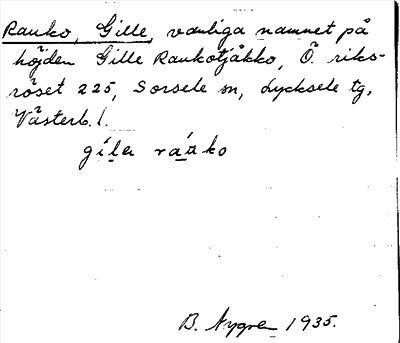 Rauko, Gille, vanliga namnet på
höjden Gille Raukotjåkko, Ö. riks-
röset 225, Sorsele sn, Lycksele tg,
Västerb. l.
gílɐ ráuko
B. Nygren 1935.